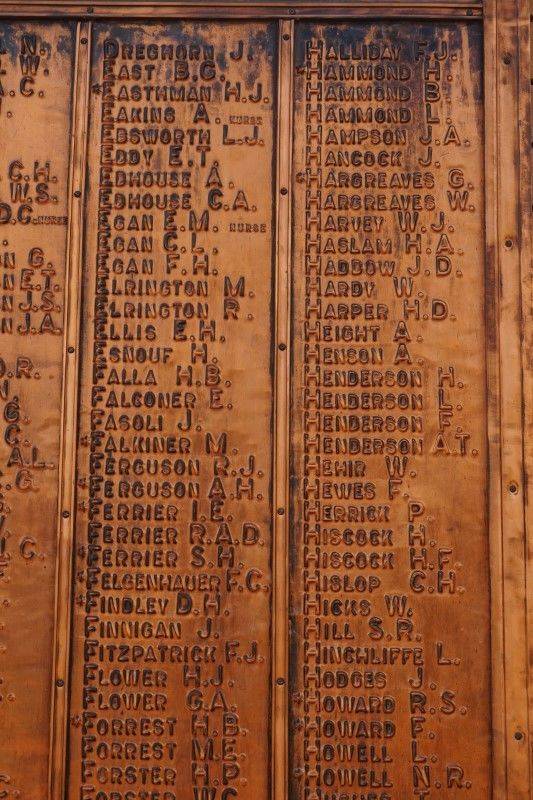 N.
W.
A.C.
G.H.
W.S.
D.C. NURSE
N G.
N E.T.
N J.S.
N J.A.
D.R.
N.
G.
C.
A.L.
G.
C.
DREGHORN J.
EAST B.G.
*EASTHMAN H.J.
EAKINS A. NURSE
EBSWORTH L.J.
EDDY E.T.
EDHOUSE A.
EDHOUSE C.A.
EGAN E.M. NURSE
EGAN C.L.
EGAN F.H.
ELRINGTON M.
ELRINGTON R.
ELLIS E.H.
ESNOUF H.
FALLA H.B.
FALCONER E.
FASOLI J.
*FALKINER M.
FERGUSON R.J.
*FERGUSON A.H.
*FERRIER I.E.
FERRIER R.A.D.
*FERRIER S.H.
*FELGENHAUER F.C.
*FINDLEY D.H.
FINNIGAN J.
FITZPATRICK F.J.
FLOWER H.J.
FLOWER G.A.
*FORREST H.B.
FORREST M.E.
FORSTER H.P.
FORSTER W.G.
HALLIDAY F.J.
*HAMMOND H.
HAMMOND B.
HAMMOND L.
HAMPSON J.A.
HANCOCK J.
*HARGREAVES G.
HARGREAVES W.
HARVEY W.J.
HASLAM H.A.
HADDOW J.D.
HARDY W.
HARPER H.D.
HEIGHT A.
HENCON A.
HENDERSON H.
HENDERSON L.
HENDERSON F.
HENDERSON A.T.
HEHIR W.
HEWES F.
HERRICK P.
HISCOCK H.
HISCOCK H.F.
HISLOP C.H.
HICKS W.
HILL S.R.
HINCHLIFFE L.
HODGES J.
*HOWARD R.S.
*HOWARD F.
HOWELL L.
*HOWELL N.R.
HUGHES T.